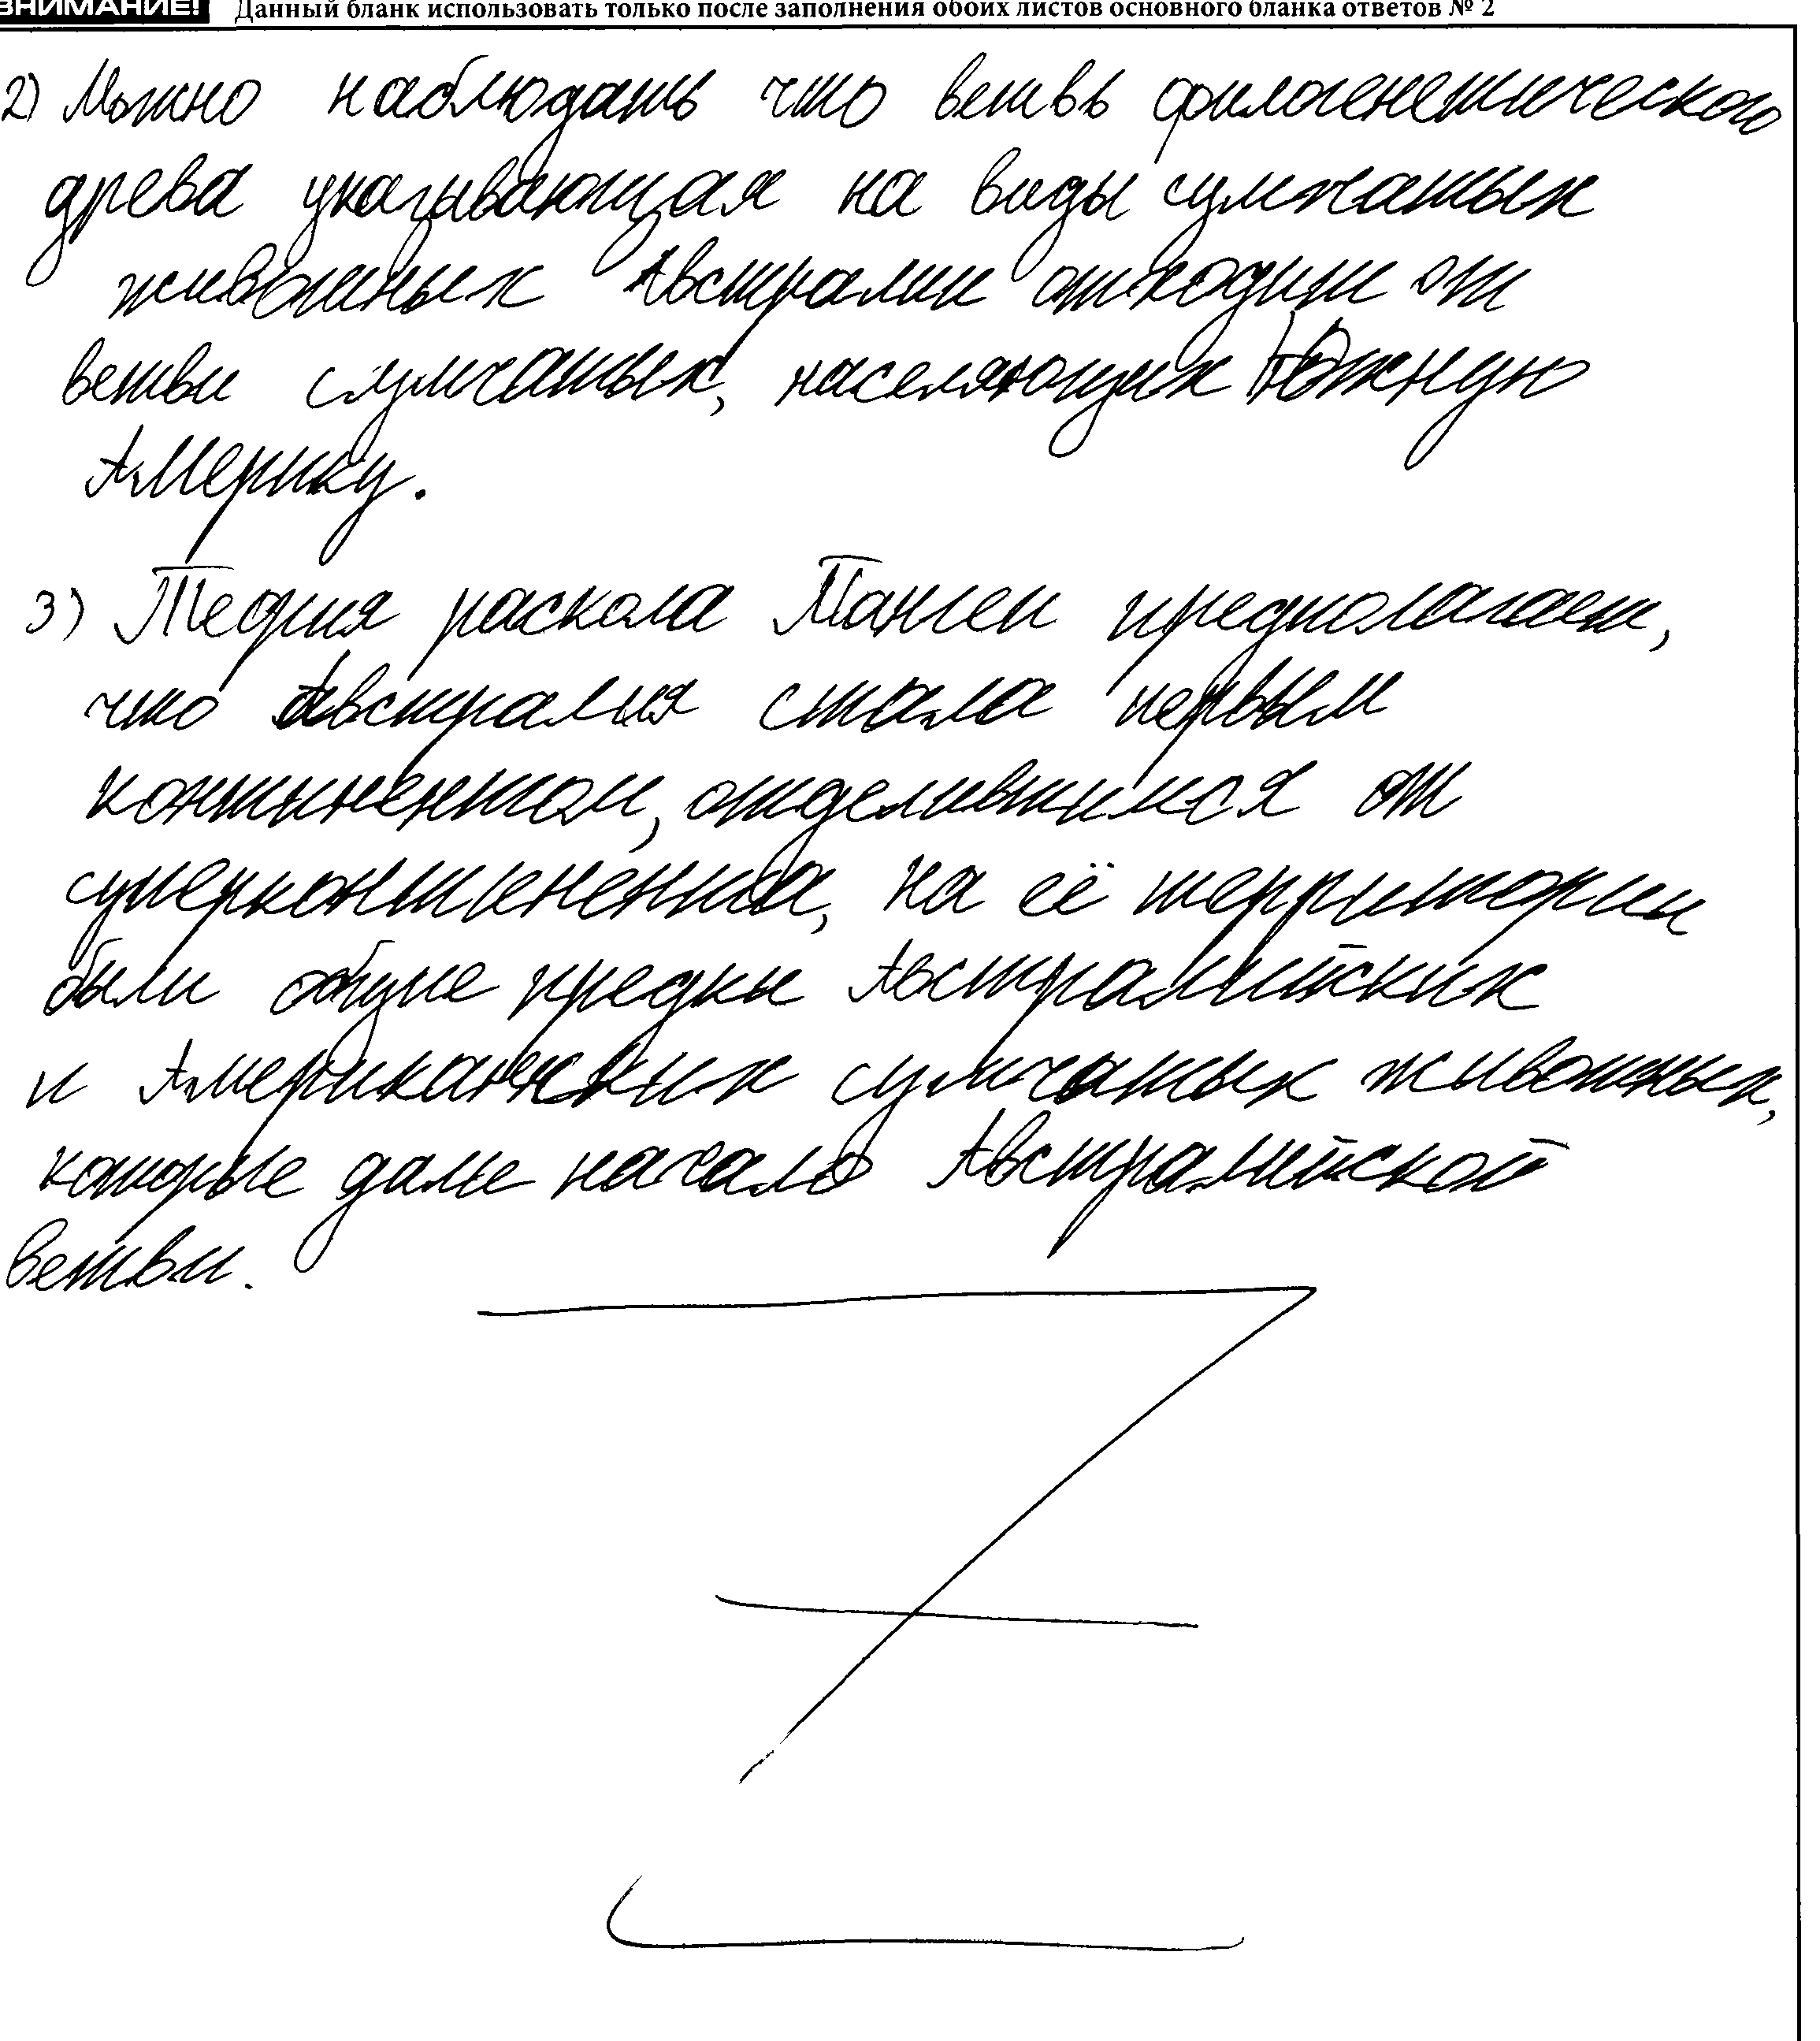 ВНИМАНИЕ! Данный бланк использовать только после заполнения обоих листов основного бланка ответов № 2
2) Можно наблюдать что ветвь филогенетического
древа указывающая на виды сумчатых
животных Австралии отходит от
ветви сумчатых, населяющих Южную
Америку.
3) Теория раскола Пангеи предполагает,
что Австралия стала первым
континентом, отделившимся от
суперконтиненента, на её территории
были общие предки Австралийских
и Американских сумчатых животных,
которые дали начало Австралийской
ветви.